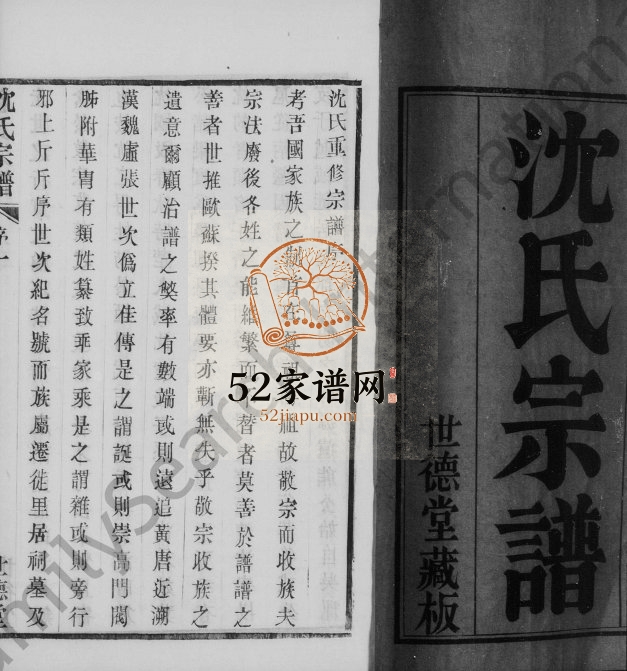 沈氏宗譜
世德堂藏板
沈氏重修宗譜序
考吾國家族之制 祖故敬宗而收族夫
宗法廢後各姓之能維繁而 替者莫善於譜譜之
善者世推歐蘇揆其體要亦斬無失乎敬宗收族之
遺意爾顧治譜之獘率有數端或則遠追黃唐近溯
漢魏盧張世次僞立佳傳是之謂誕或則崇高門閥
胏附華胄有類姓纂致乖家乘是之謂雜或則旁行
邪上斤斤序世次紀名號而族屬遷徙里居祠墓及
沈氏宗譜
序一
世德堂
52家谱网
52jiapu.com
FamilySearch International